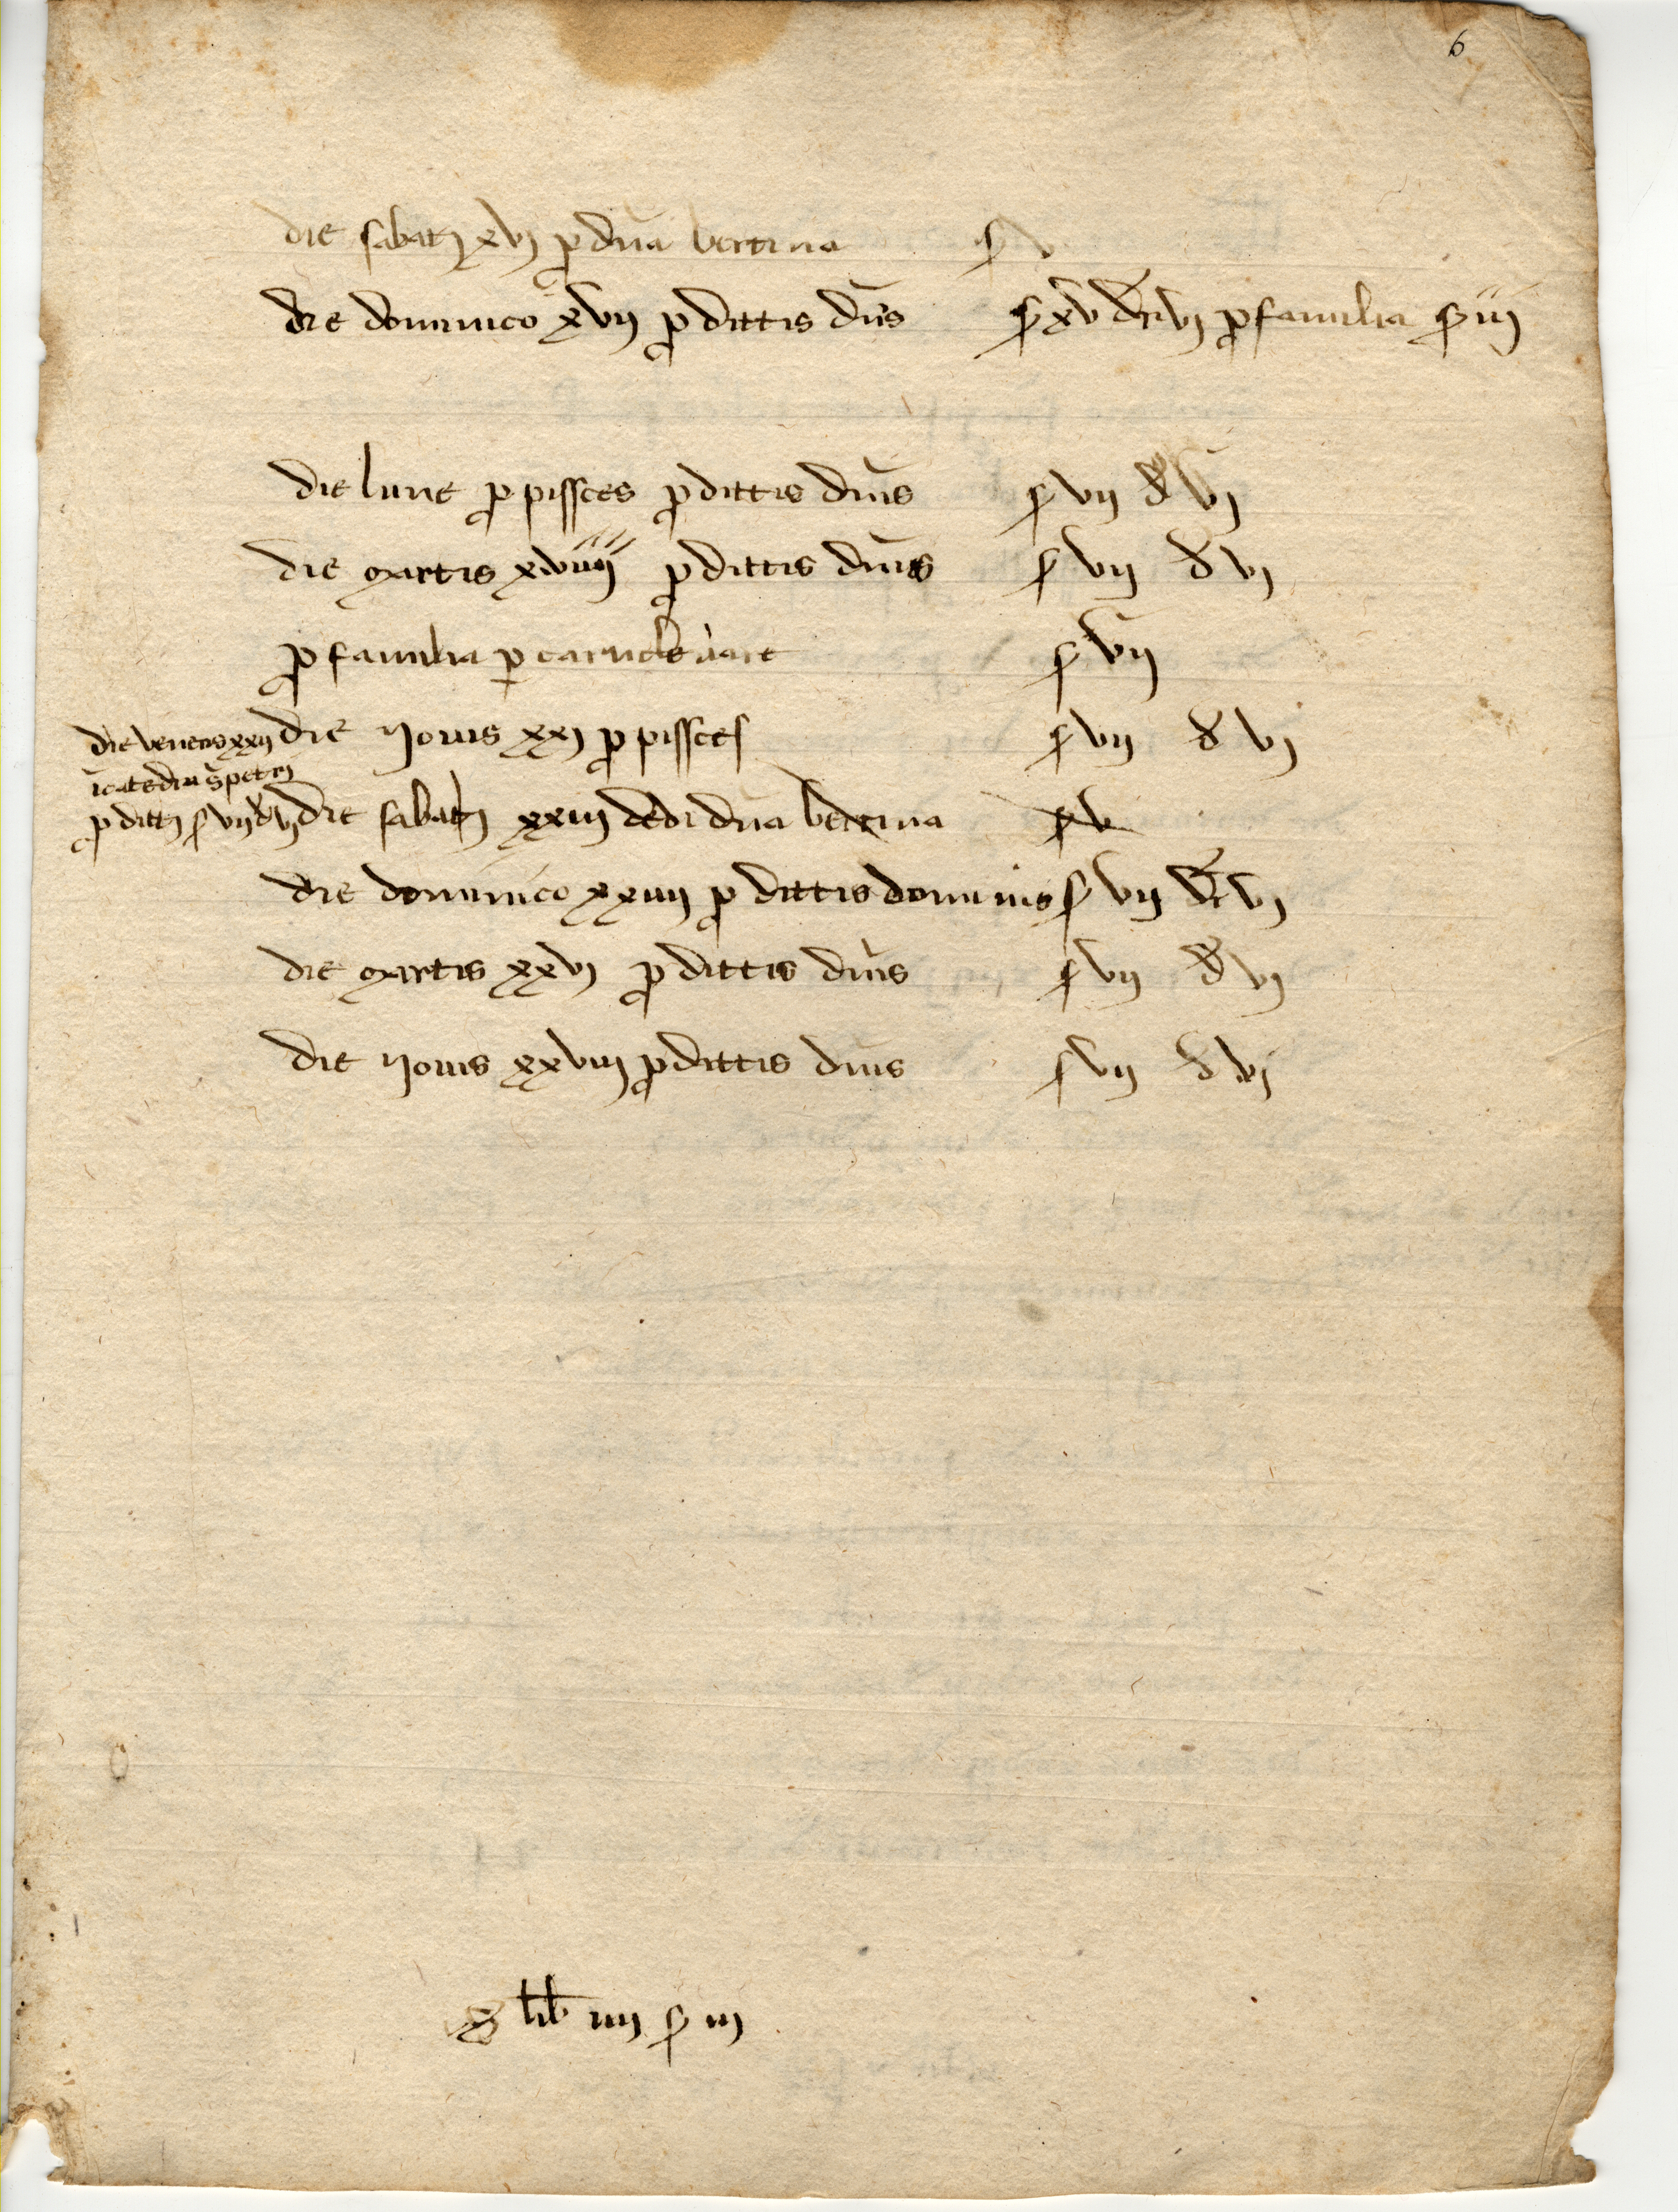 6
die sabati xvj p dña bertina ſ v
die dominico xvij p dittis dñis ſ xv dñ vj p familia ſ iij
die lune p pissces p dittis dñis ſ vij d vj
die martis xviiij p dittis dñis ſ vij d vj
p familia p ſ vij
die Jovis xxj p pissces ſ vij d vj
die veneris xxij
ĩ catedra s petri
p dittis ſ vij d vj
die sabati xxiij dedi dña bertina ſ v
die dominico xxiiij p dittis dominis ſ vij dñ vj
die martis xxvj p dittis dñis ſ vij d vj
die Jovis xxviij p dittis dñis ſ vij d vj
lib iiij ſ iij